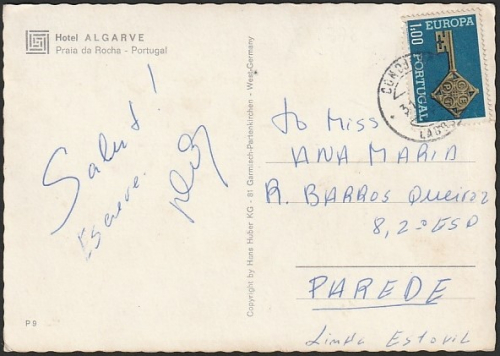 Hotel ALGARVE
Praia da Rocha - Portugal
Salut!
Escreve.
P 9
Copyright by Huns Huber KG - 81 Garmisch-Partenkirchen - West-Germany
EUROPA
1.00
PORTUGAL
CEPT
LAGOS
to Miss
ANA MARIA
R. BARROS Queiroz
8, 2º ESD
PAREDE
Linha Estoril